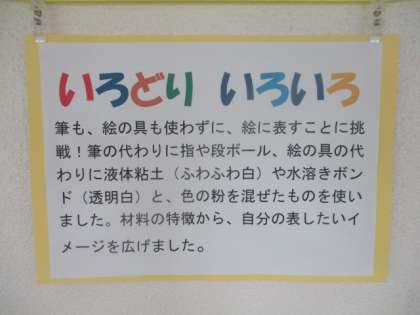 いろどり いろいろ
筆も、絵の具も使わずに、絵に表すことに挑
戦！筆の代わりに指や段ボール、絵の具の代
わりに液体粘土（ふわふわ白）や水溶きボン
ド（透明白）と、色の粉を混ぜたものを使い
ました。材料の特徴から、自分の表したいイ
メージを広げました。